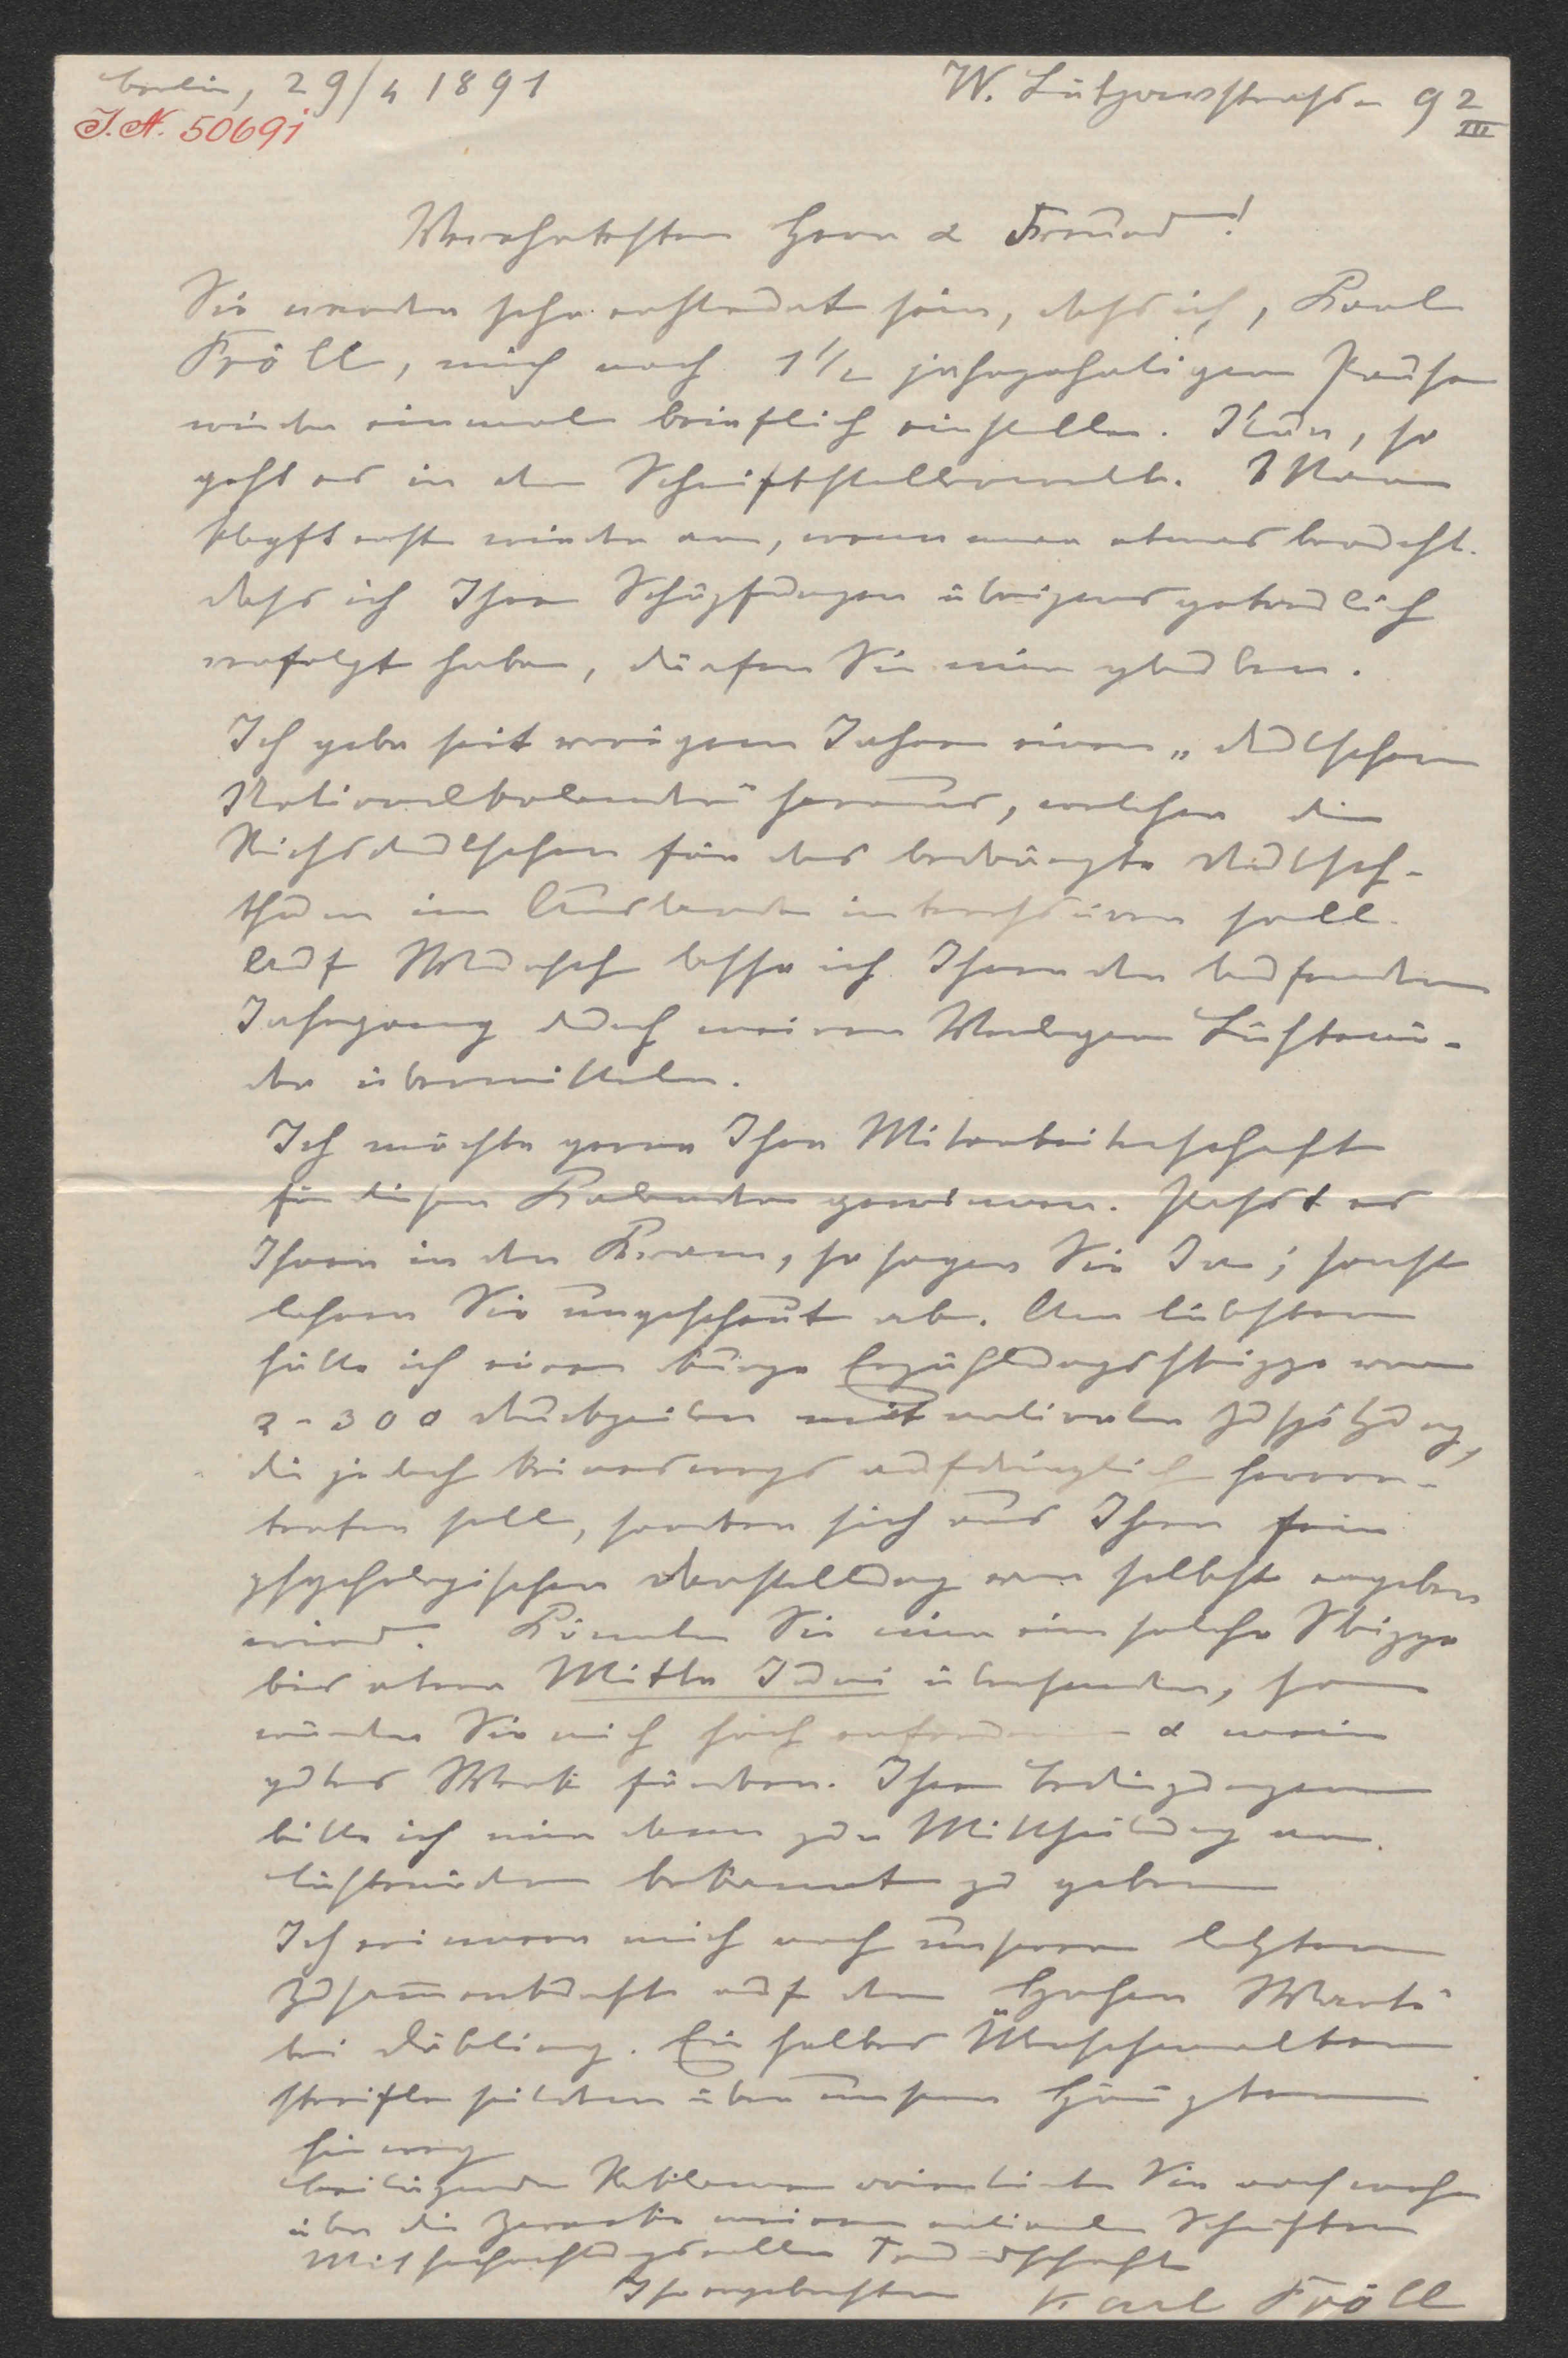 Berlin, 29/4 1891
W. Lützowstrasse 92 III
J.N. 50691
Verehrtester Herr & Freund!
Sie werden sehr erstaunt sein, dass ich, Karl
Pröll, mich nach 1 1/2 jahrzehntigen Pause
wieder einmal brieflich einstelle. Nun, so
geht es in der Schriftstellerwelt. Man
klopft erst wieder an, wenn man etwas braucht.
Dass ich Ihre Schöpfungen übrigens getreulich
verfolgt habe, dürfen Sie mir glauben.
Ich gebe seit wenigen Jahren einen „deutschen
Nationalkalender" heraus, welcher die
Reichsdeutschen für das bedrängte Deutsch-
thum im Auslande interessieren soll.
Auf Wunsch lasse ich Ihnen den laufenden
Jahrgang durch meinen Verleger Lüstenö-
der übermitteln.
Ich möchte gerne Ihre Mitarbeiterschaft
für diesen Kalender gewinnen. Passt es
Ihnen in den Kram, so sagen Sie Ja; sonst
lehnen Sie ungescheut ab. Am liebsten
hätte ich eine kurze Erzählungsskizze von
2-300 Druckzeilen mit nationaler Zuspitzung,
die jedoch keineswegs aufdringlich hervor-
treten soll, sondern sich aus Ihrer fein
psychologischen Darstellung von selbst ergeben
wird. Könnten Sie mir eine solche Skizze
bis etwa Mitte Juni übersenden, so
würden Sie mich hoch erfreuen & mein
gutes Werk fördern. Ihre Bedingungen
bitte ich mir dann zur Mittheilung an
Lüstenöder bekannt zu geben
Ich erinnere mich noch unserer letzten
Zusammenkunft auf der Hohen Warte
bei Döbling. Ein halbes Menschenalter
streifte seitdem über unsere Häupter
hinweg
Beiliegende Reklame orientirt Sie noch mehr
über die Zwecke meiner nationalen Schriften
Mit hochachtungsvoller Freundschaft
Ihr ergebenster Karl Pröll